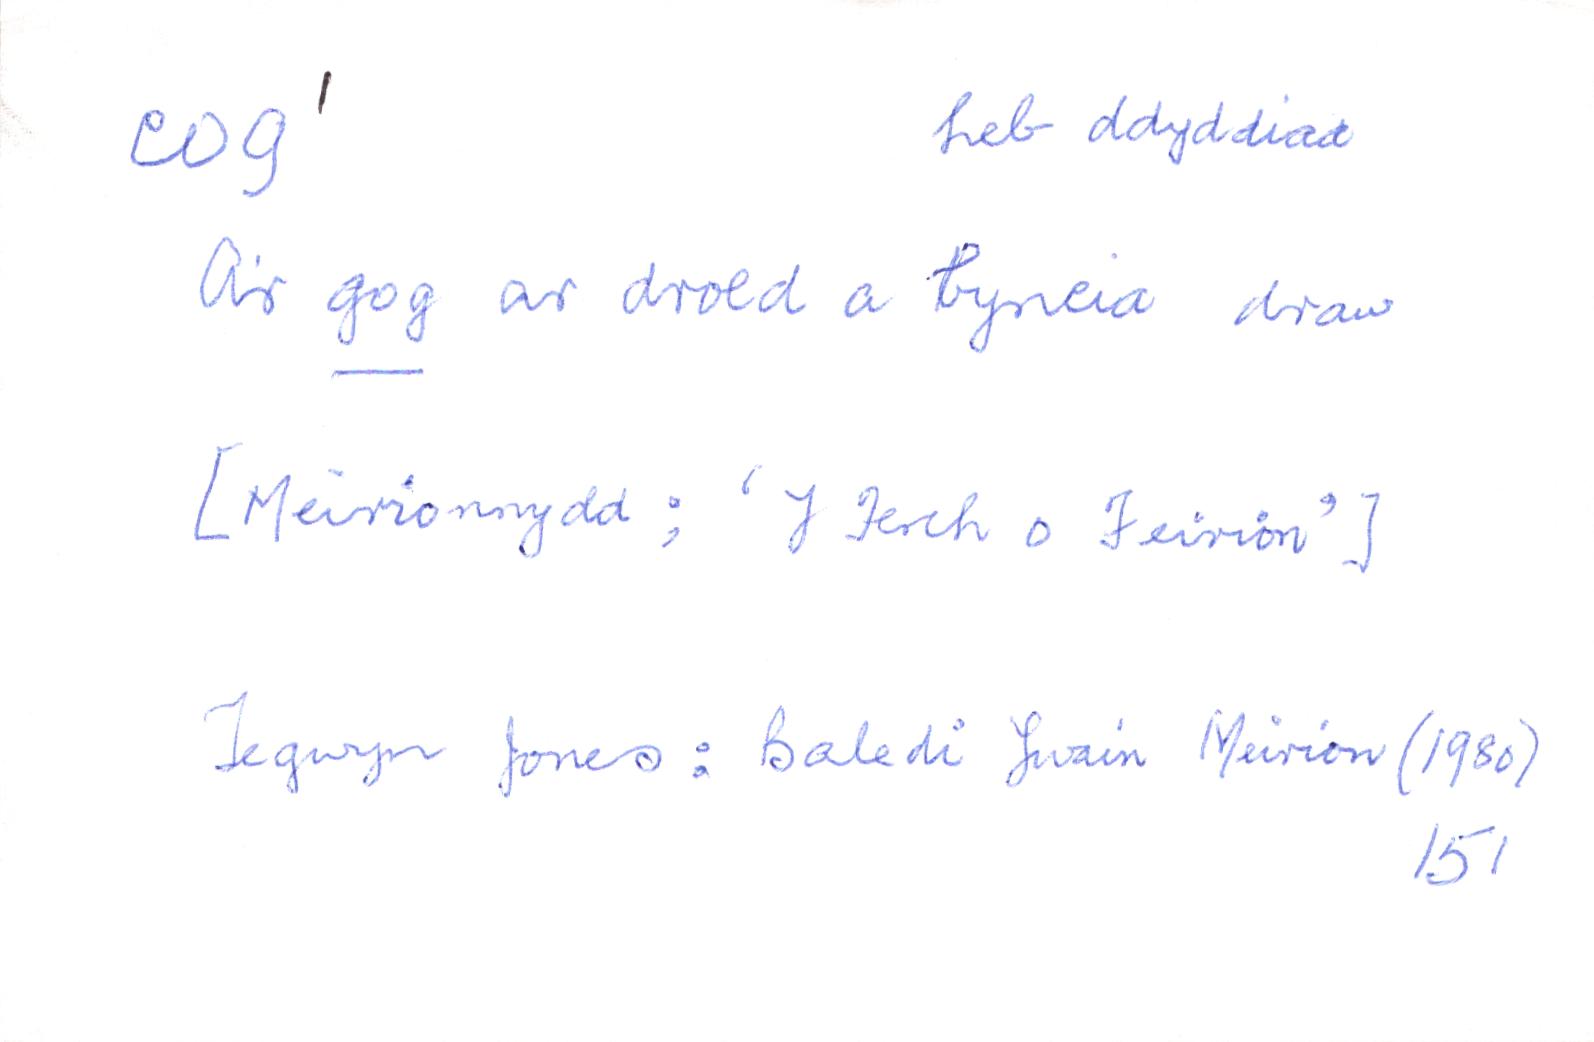 cog¹ heb ddyddiad
A'r gog ar droed a byncia draw
[Meirionnydd; 'Y Ferch o Feirion']
Tegwyn Jones: Baledi Ywain Meirion (1980)
151